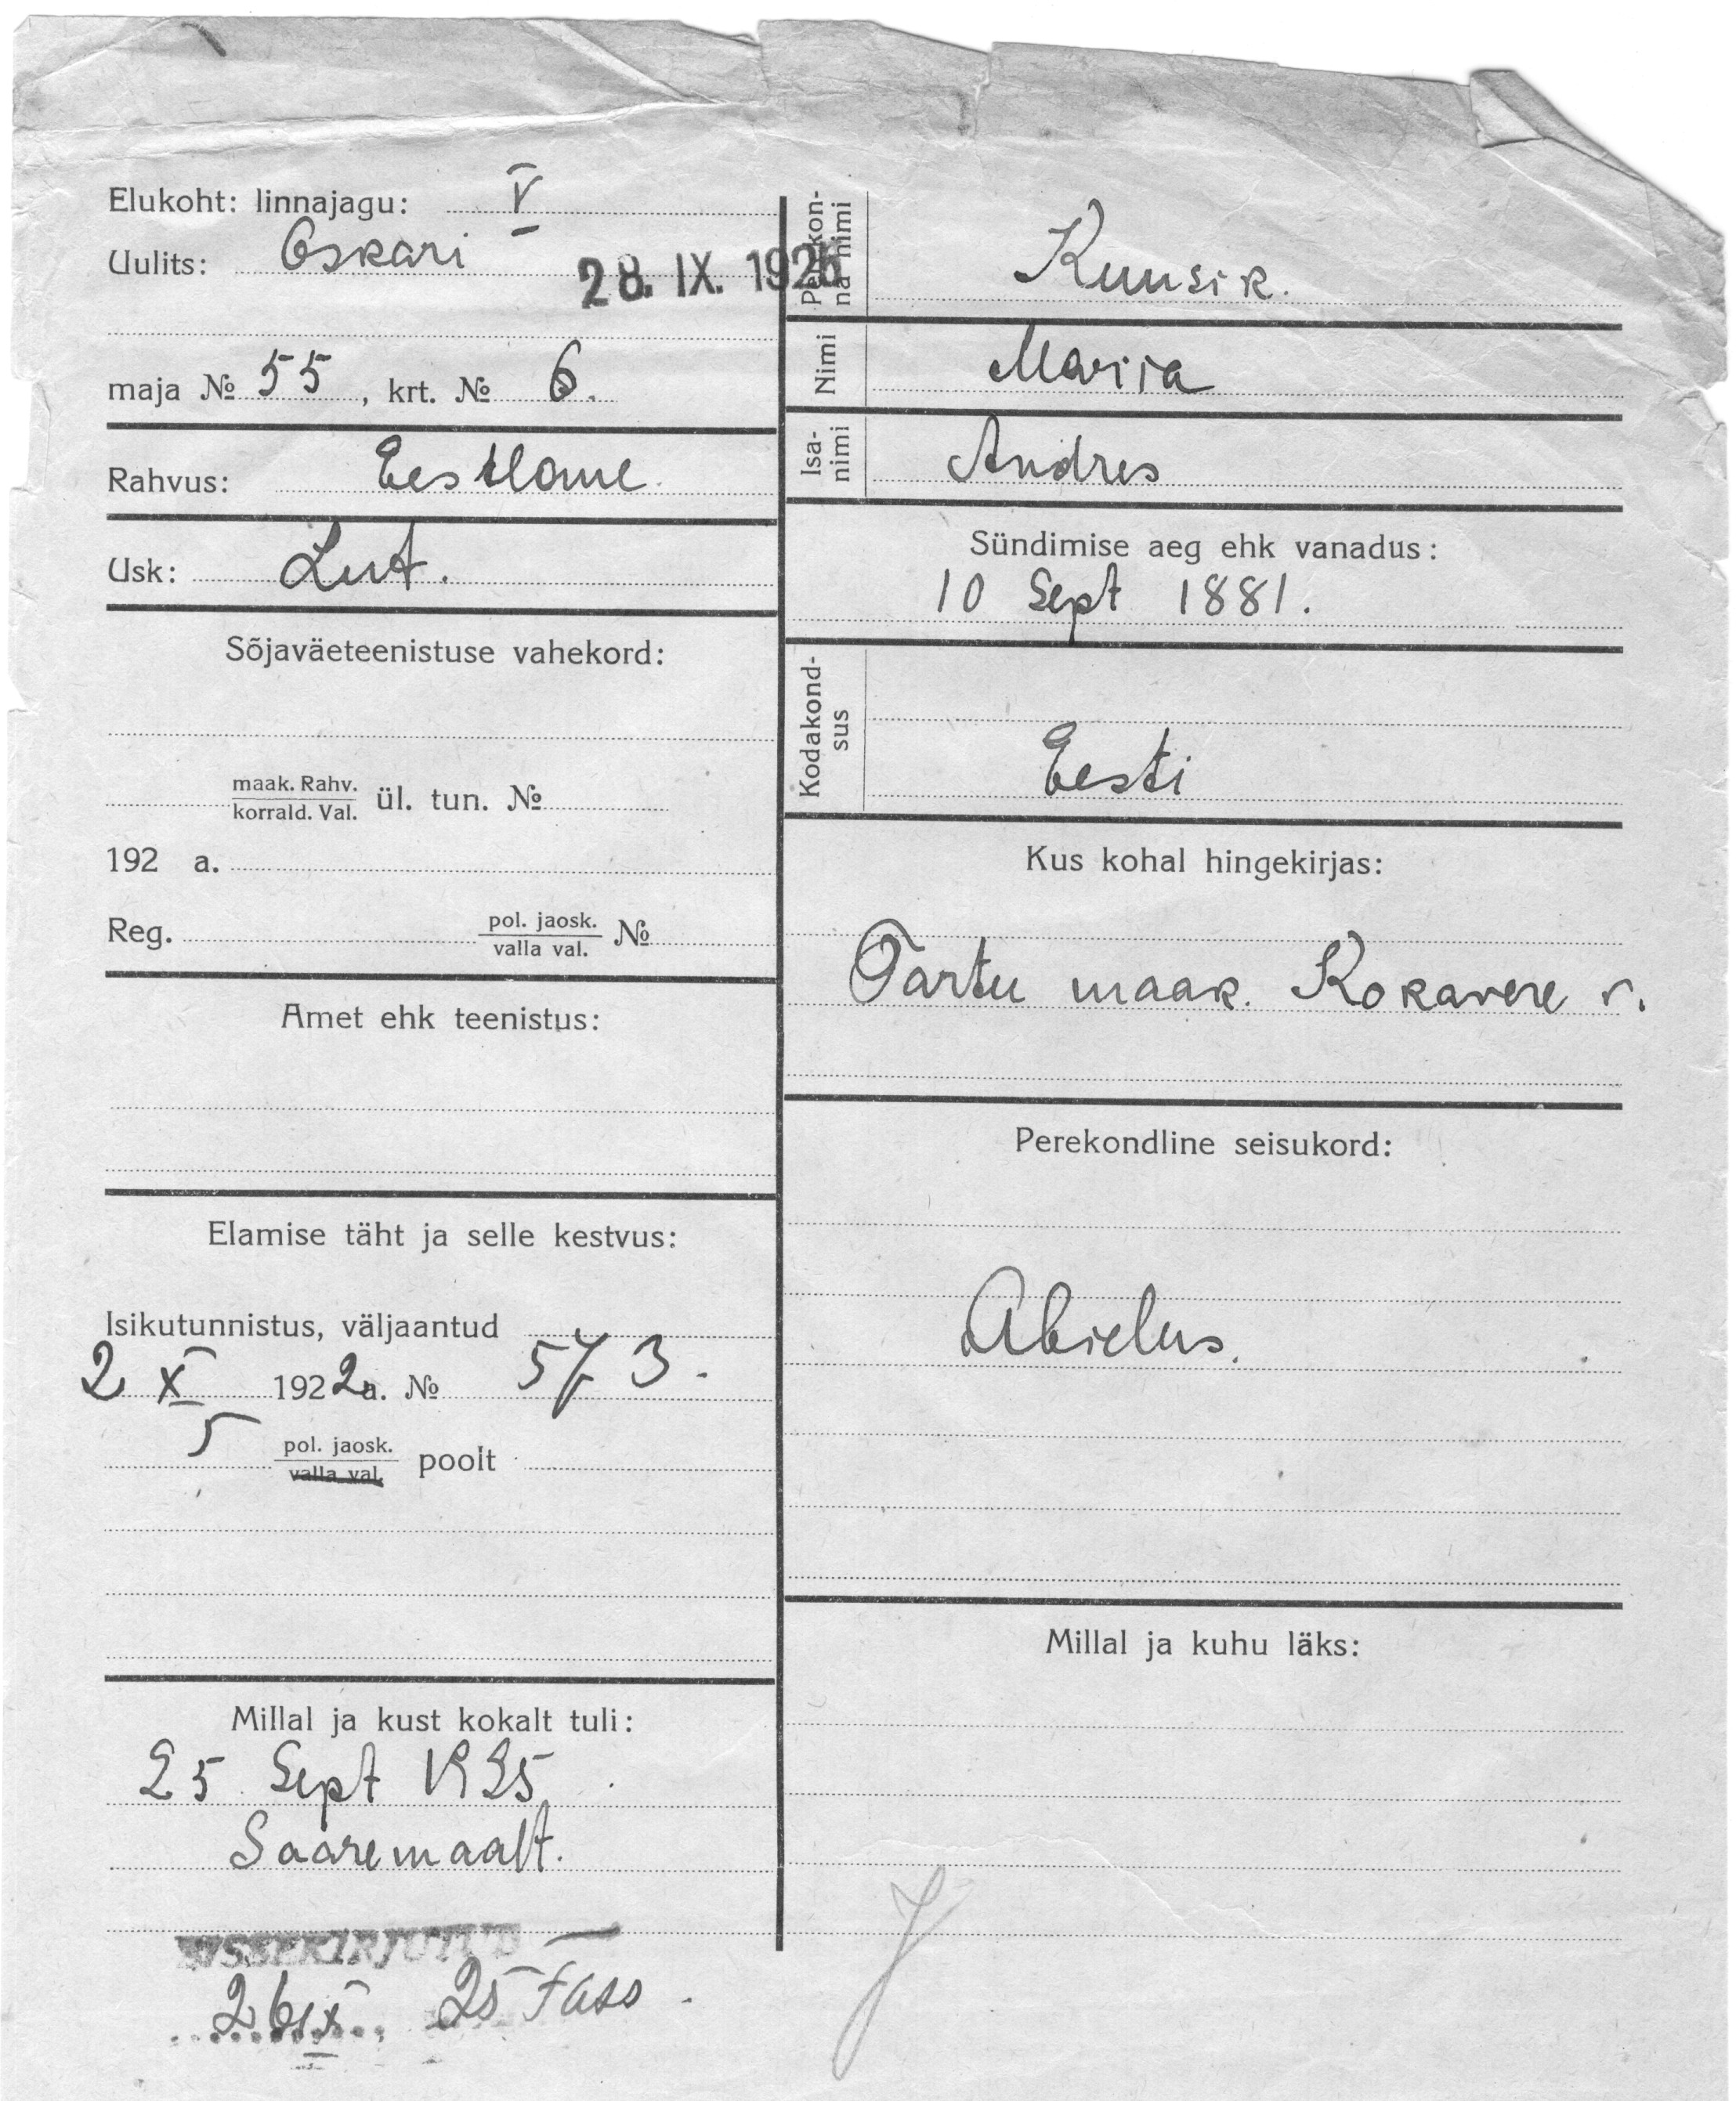 Elukoht: linnajagu: V
Uulits: Oskari
28. IX. 1925
maja № 55, krt. № 6.
Rahvus: Eestlane
Usk: Lut.
Sõjaväeteenistuse vahekord:
maak. Rahv.
korrald. Val. ül. tun. №
192 a.
Reg. pol. jaosk.
valla val. №
Amet ehk teenistus:
Elamise täht ja selle kestvus:
Isikutunnistus, väljaantud
2 X 1922 a. № 573.
5 pol. jaosk.
valla val. poolt
Millal ja kust kokalt tuli:
25 Sept 1925
Saaremaalt.
SISSEKIRJUTUD
26 IX 25
Perekon-
na nimi
Kuusik.
Nimi
Mariia
Isa-
nimi
Andres
Sündimise aeg ehk vanadus:
10 Sept 1881.
Kodakond-
sus
Eesti
Kus kohal hingekirjas:
Tartu maak. Kokavere v.
Perekondline seisukord:
Abielus.
Millal ja kuhu läks: